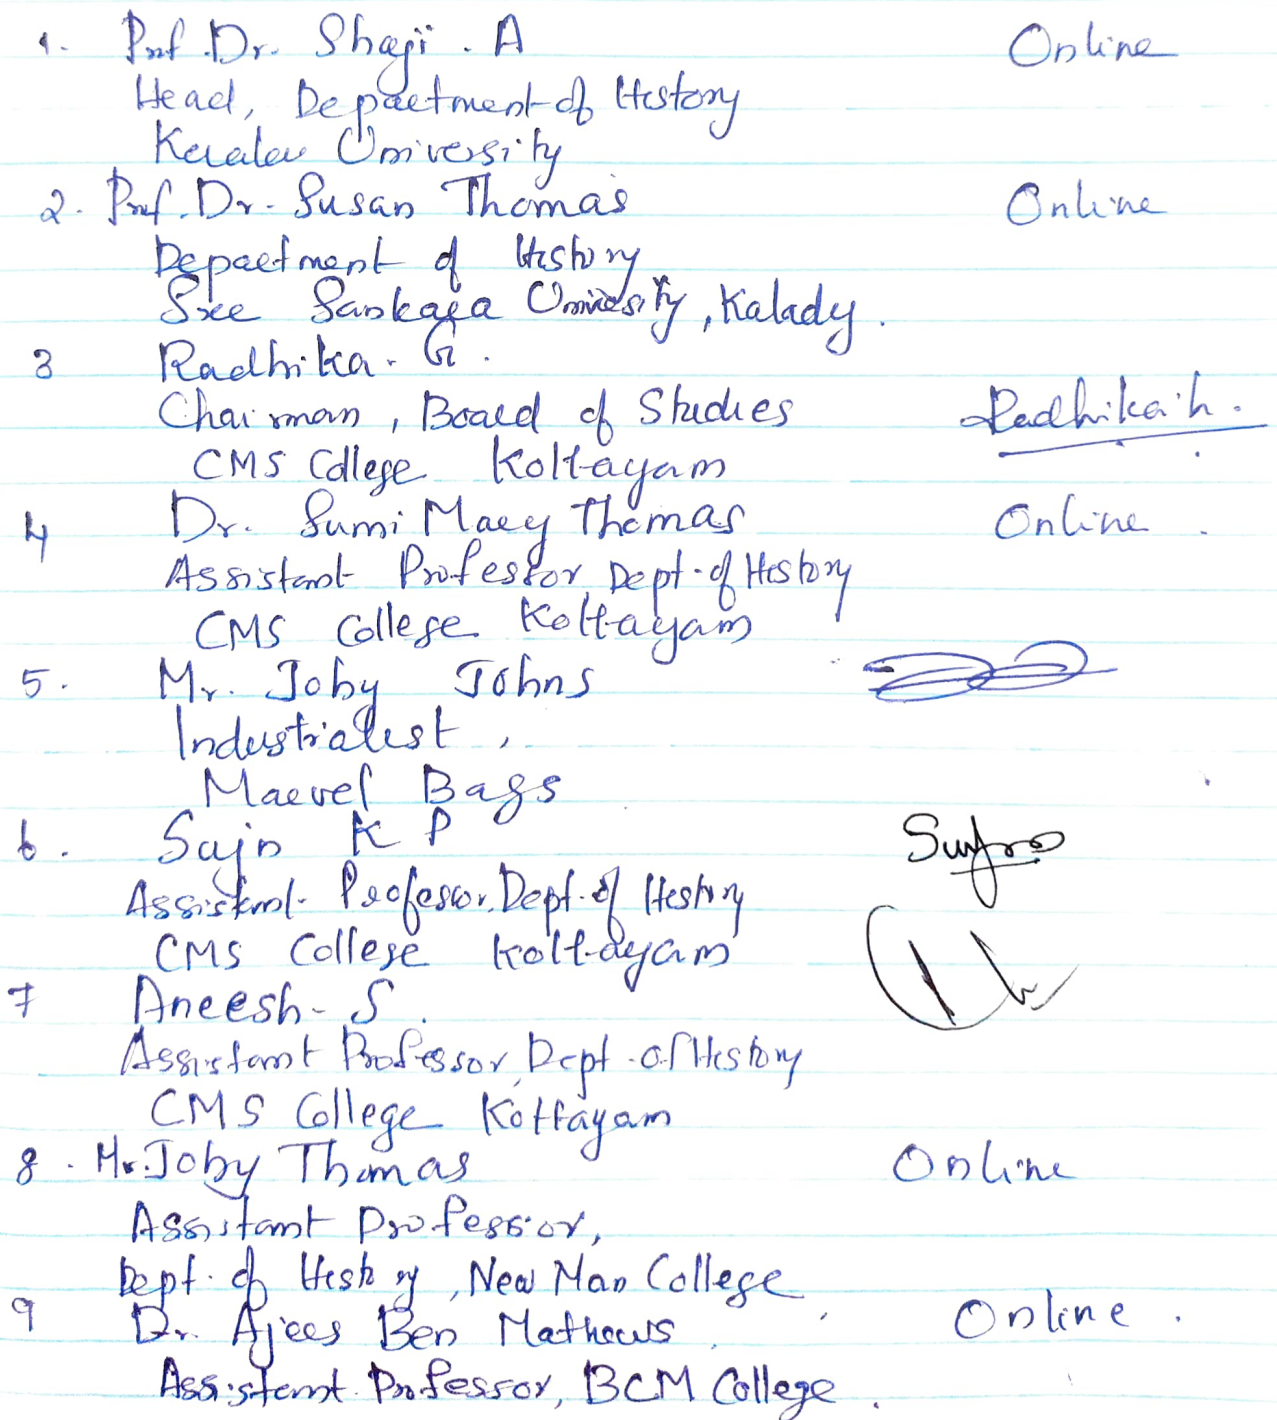 1. Prof. Dr. Shaji . A Online
Head, Department of History
Kerala University
2. Prof. Dr. Susan Thomas Online
Department of History
Sree Sankara University, Kalady.
3 Radhika. G.
Chairman, Board of Studies Radhika.
CMS College Kottayam
4 Dr. Sumi Mary Thomas Online .
Assistant Professor, Dept. of History
CMS College Kottayam
5. Mr. Joby Johns
Industrialist,
Marvel Bags
6. Sajn K P
Assistant Professor, Dept. of History
CMS College Kottayam
7 Aneesh. S.
Assistant Professor, Dept. of History
CMS College Kottayam
8. Mr. Joby Thomas Online
Assistant Professor,
Dept. of History, New Man College
9 Dr. Ajees Ben Mathews Online .
Assistant Professor, BCM College.